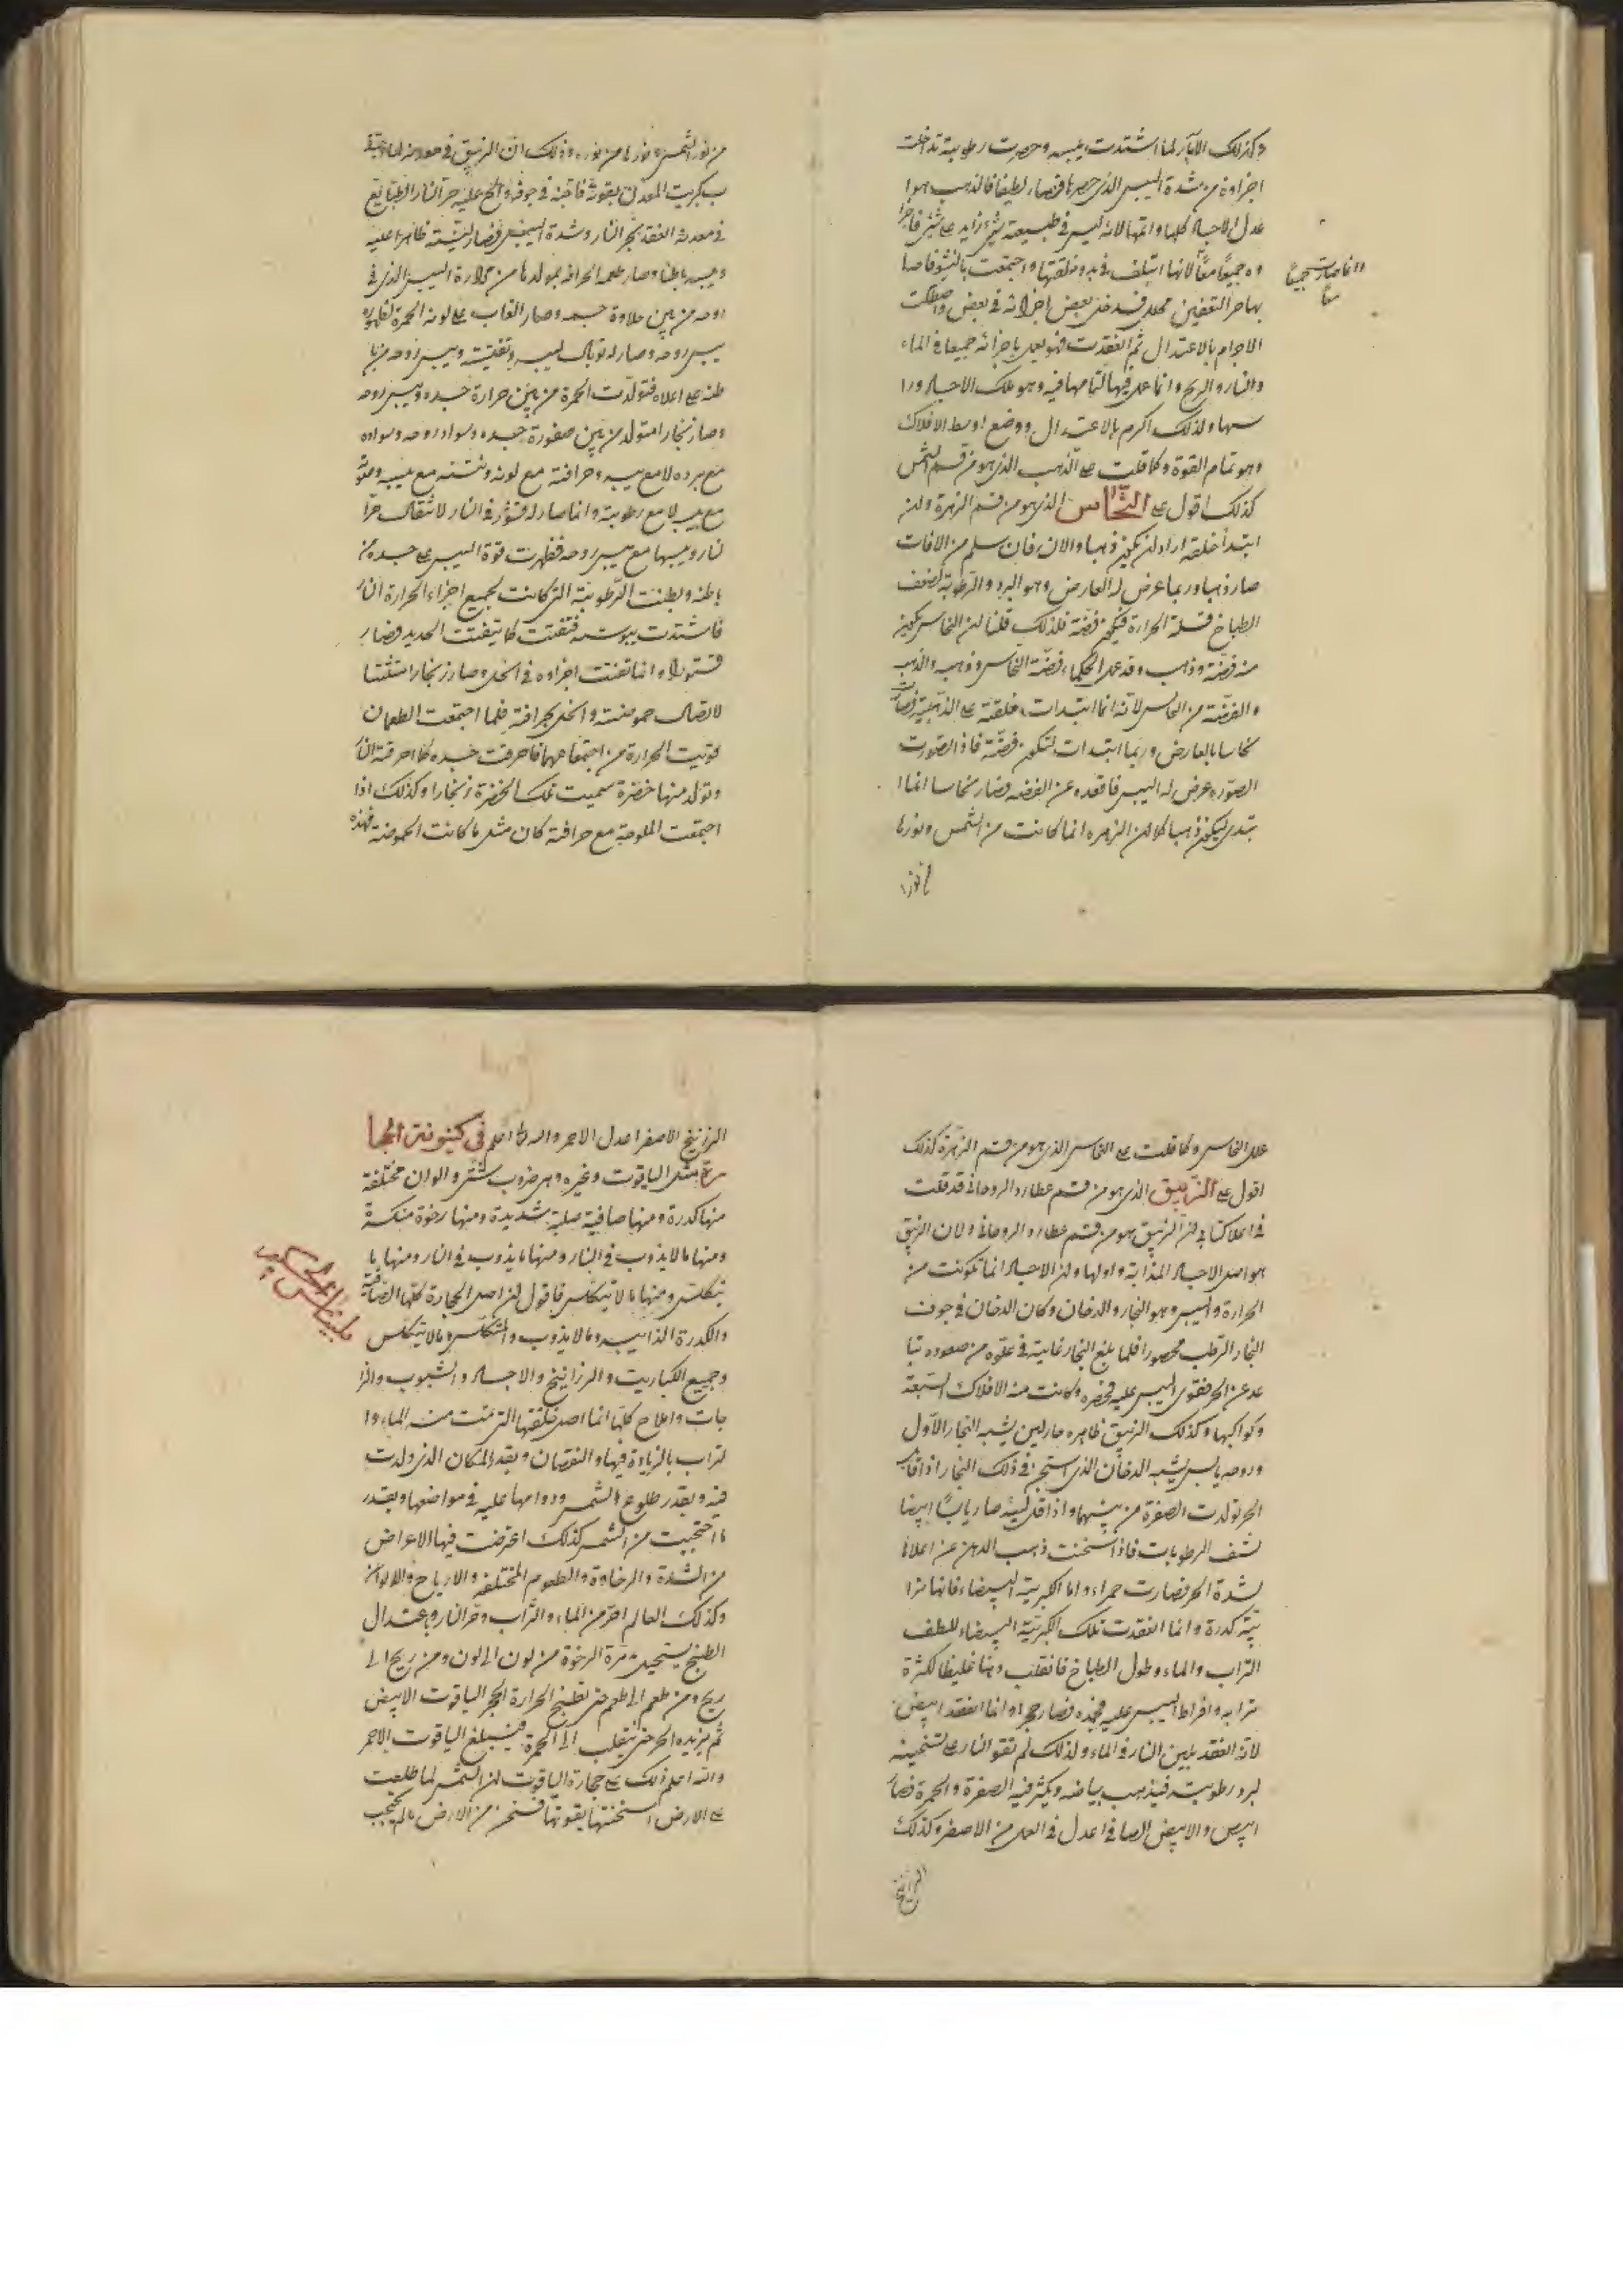 وكذلك الابار لما اشتدت يبسه وحصرت رطوبته تداخلت
اجزاوه من شدة اليبس الذى حصرها فصار لطيفا فالذهب هوا
عدل الاجساد كلها واتمها لانه ليس فى طبيعته شئ زايد على شئ فاجزا
وه جميعا معا لانها ايتلف فى بدو خلقتها واجتمعت بالنشو فاصا
وانما صارت جميعا
معا
بها حر التعفين فدخل بعض اجزائه فى بعض
الاجرام بالاعتدال ثم انعقدت فهو يعد باجزائه جميعا فى الماء
والنار والريح وانما على فيها لتمامها فيه وهو ملك الاجساد ورا
سها ولذلك اكرم بالاعتدال ووضع اوسط الافلاك
وهو تمام القوة وكما قلت على الذهب الذى هو من قسم الشمس
كذلك اقول على النحاس الذى هو من قسم الزهرة ولن
ابتدأ خلقه اراد لن يكون ذهبا والان فان سلم من الافات
صار ذهبا وربما عرض له العارض وهو البرد والرطوبة لضعف
الطباخ قلة الحرارة فيكون فضة فلذلك قلنا لن النحاس يكون
منه فضة وذهب وقد عمل الحكماء فضة النحاس وذهبه والذهب
والفضة من النحاس لانه انما ابتدات خلقته على الذهبية فصار
نحاسا بالعارض وربما ابتدات لتكون فضة فاذا تصورت
الصوره عرض له اليبس فاقعده عن الفضه فصار نحاسا انما ا
بتدى ليكون ذهبا كما لن الزهره انما كانت من الشمس ونورها
من نور
من نور الشمس ونورها من نوره وذلك ان الزيبق فى معدنه لما اختلط
بكبريت المعدن بقوته فاقبه فى جوفه والح عليه حر النار الطبايع
فى معدنه انعقد بحر النار وشدة اليبس فصار لينته ظاهرا عليه
ويبسه باطنا وصار طعمه الحرافه بمولدها من حرارة اليبس الذى فى
روحه من بين حلاوة جسده وصار الغالب على لونه الحمرة لظهور
يبس روحه وصار له توبال ليبسه وتفتيته ويبس روحه من با
طنه على اعلاه فتولدت الحمرة من بين حرارة جسده ويبس روحه
وصار زنجارا متولد من بين صفورة جسده وسواد روحه وسواده
مع برده لا مع يبسه وحرافته مع لونه ونتنه مع يبسه
مع يبسه لا مع رطوبته وانما صار له قشور فى النار لاتصال حر ا
لنار ويبسها مع يبس روحه فظهرت قوة اليبس على جسده من
باطنه وبطنت الرطوبة التى كانت لجميع اجزاء الحرارة النار
فاشتدت يبوسته فتفتت كما يتفتت الحديد فصار
قشورا وانما تفتت اجزاوه فى الخل وصار زنجارا متشتتا
لاتصال حموضته والخل بحرافته فلما اجتمعت الطعمان
قويت الحرارة من اجتماعهما فاحرقت جسده كما احرقته النار
وتولد منها خضرة سميت تلك الخضرة زنجارا وكذلك اذا
اجتمعت الملوحة مع حرافته كان مثل ما كانت الحموضة فهذه
علل النحاس وكما قلت على النحاس الذى هو من قسم الزهرة كذلك
اقول على الزيبق الذى هو من قسم عطارد الروحانى قد قلت
فى اعلا كتابى لن الزيبق هو من قسم عطارد الروحانى ولان الزيبق
هو اصل الاجساد المذابة واولها ولن الاجساد انما تكونت من
الحرارة واليبس وهو البخار والدخان وكان الدخان فى جوف
البخار الرطب محصورا فلما بلغ البخار غايته فى علوه من صعوده تبا
عد عن الحر فقوى اليبس عليه فحصره وكانت منه الافلاك السبعة
وكواكبها وكذلك الزيبق ظاهره حار لين يشبه البخار الاول
وروحه يابس يشبه الدخان الذى استجن فى ذلك البخار اذا اقاب
الحر تولدت الصفرة من بينهما واذا قل لينه صار يابسا ابيضا
نشف الرطوبات فاذا سخنت ذهب الدهن عن اعلاها
لشدة الحر فصارت حمراء واما الكبريتة البيضاء فانها ترا
بية كدرة وانما انعقدت تلك الكبريتة البيضاء للطف
التراب والماء وطول الطباخ فانقلب دهنا غليظا لكثرة
ترابه وافراط اليبس عليه فجمده فصار حجرا وانما انعقد ابيض
لانه انعقد بلين النار فى الماء ولذلك لم تقو النار على تسخينه
لبرد رطوبته فيذهب بياضه ويكثر فيه الصفرة والحمرة فصار
ابيض والابيض الصافى اعدل فى العمل من الاصفر وكذلك
الزرانيخ
الزرنيخ الاصفر اعدل الاحمر والله اعلم فى كينونة الحجا
رة مثل الياقوت وغيره وهى ضروب شتى والوان مختلفة
منها كدرة ومنها صافية صلبة شديدة ومنها رخوة منكسة
ومنها ما لا يذوب فى النار ومنها ما يذوب فى النار ومنها ما
يتكلس ومنها ما لا يتكلس فاقول لن اصل الحجارة كلها الصافية
والكدرة الذايبه وما لا يذوب والمتكلس وما لا يتكلس
وجميع الكباريت والزرانيخ والاجساد والشبوب والزا
جات واملاح كلها انما اصل خلقتها التى نمت منه الماء وا
لتراب بالزيادة فيها والنقصان وبقدر المكان الذى ولدت
فيه وبقدر طلوع الشمس ودوامها عليه فى مواضعها وبقدر
ما احتجبت من الشمس كذلك اعترضت فيها الاعراض
من الشدة والرخاوة والطعوم المختلفه والارياح والالوان
وكذلك العالم اقر من الماء والتراب وحر النار وباعتدال
الطبخ يستحيل مرة الرخوة من لون الى لون ومن ريح الى
ريح ومن طعم الى طعم حتى تطبخ الحرارة الحجر الياقوت الابيض
ثم يزيده الحر حتى ينقلب الى الحمرة فيبلغ الياقوت الاحمر
والله اعلم ذلك على حجارة الياقوت لن الشمس لما طلعت
على الارض اسخنتها بقوتها فسخن من الارض ما لم يحتجب